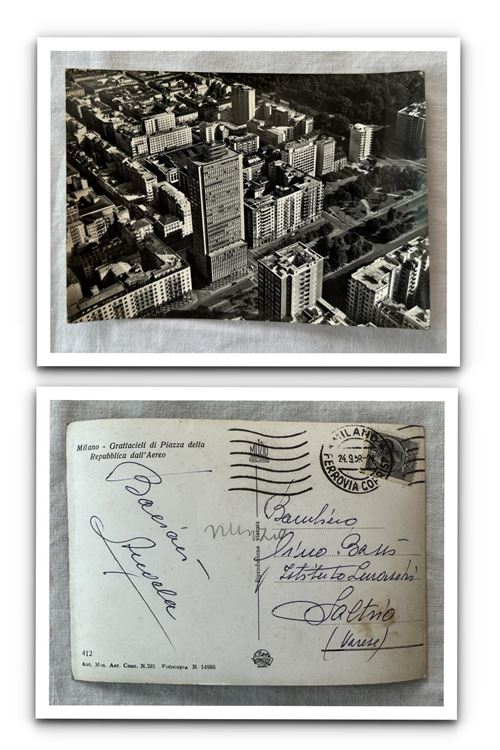 Milano - Grattacieli di Piazza della
Repubblica dall'Aereo
MILANO
FERROVIA CORRISP.
24.9.58
Bacioni
Bambino
Gino Bassi
Istituto
Saltrio
(Varese)
Riproduzione vietata
412
Aut. Min. Aer. Conc. N.281 Fotocopra N. 14986